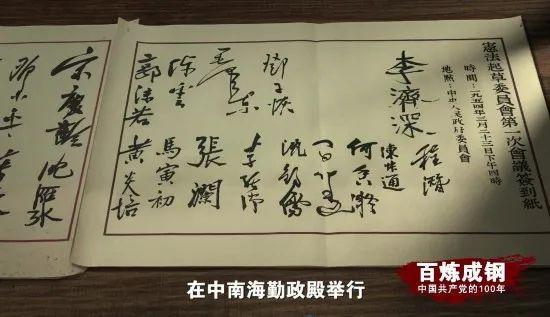 憲法起草委員會第一次會議簽到紙
時間:一九五四年三月二十三日下午四時
地點:中央人民政府委員會
程潛
陳叔通
李濟深
何香凝
鄧子恢
沈鈞儒
毛澤東
張瀾
陳雲
馬寅初
郭沫若
黃炎培
宋慶齡
在中南海勤政殿举行
百炼成钢
中国共产党的100年